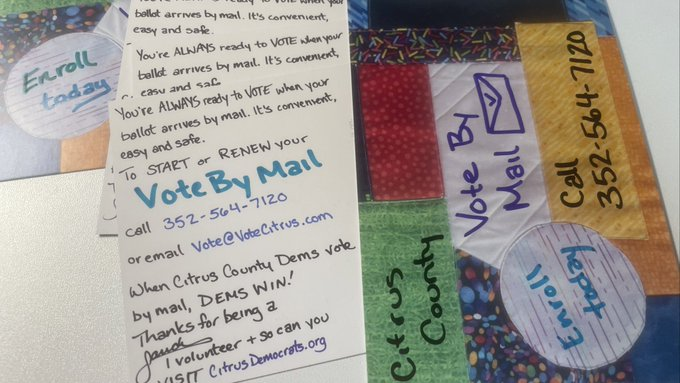 You're ALWAYS ready to VOTE when your
ballot arrives by mail. It's convenient,
easy and safe.
You're ALWAYS ready to VOTE when your
ballot arrives by mail. It's convenient,
easy and safe
You're ALWAYS ready to VOTE when your
ballot arrives by mail. It's convenient,
easy and safe.
To START or RENEW your
Vote By Mail
call 352-564-7120
or email Vote@VoteCitrus.com
When Citrus County Dems vote
by mail, DEMS WIN!
Thanks for being a
I volunteer + so can you
VISIT CitrusDemocrats.org
Enroll
today
Vote By
Mail
Call
352-564-7120
Citrus
County
Enroll
today